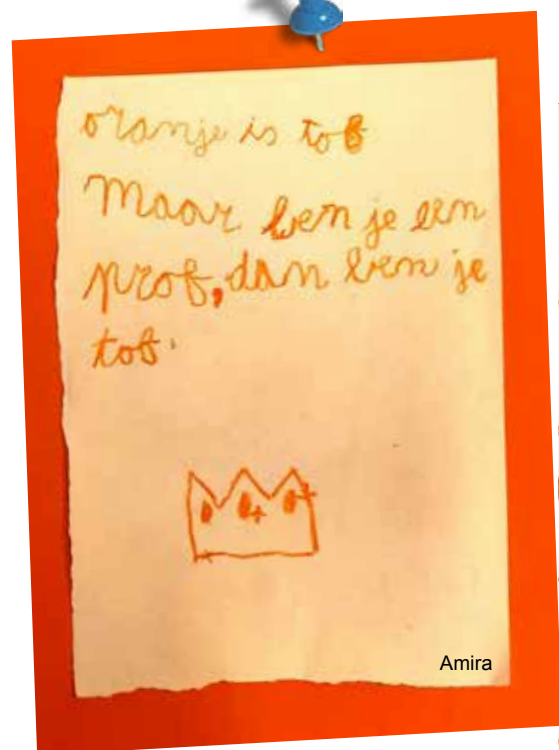 oranje is tof
Maar ben je een
prof, dan ben je
tof.
Amira